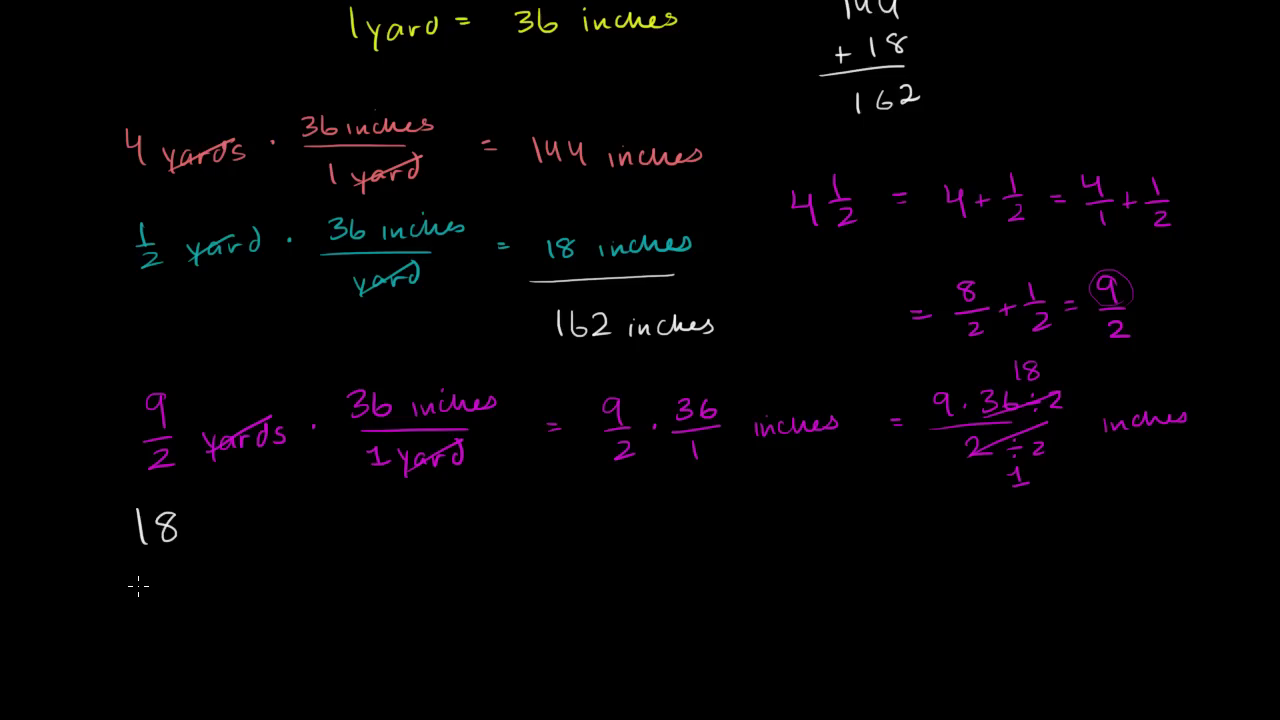 1 yard = 36 inches
144
+ 18
162
4 yards · 36 inches / 1 yard = 144 inches
1/2 yard · 36 inches / yard = 18 inches
162 inches
4 1/2 = 4 + 1/2 = 4/1 + 1/2
= 8/2 + 1/2 = 9/2
9/2 yards · 36 inches / 1 yard = 9/2 · 36/1 inches = 9 · 36 ÷ 2 / 2 ÷ 2 inches
18
1
18